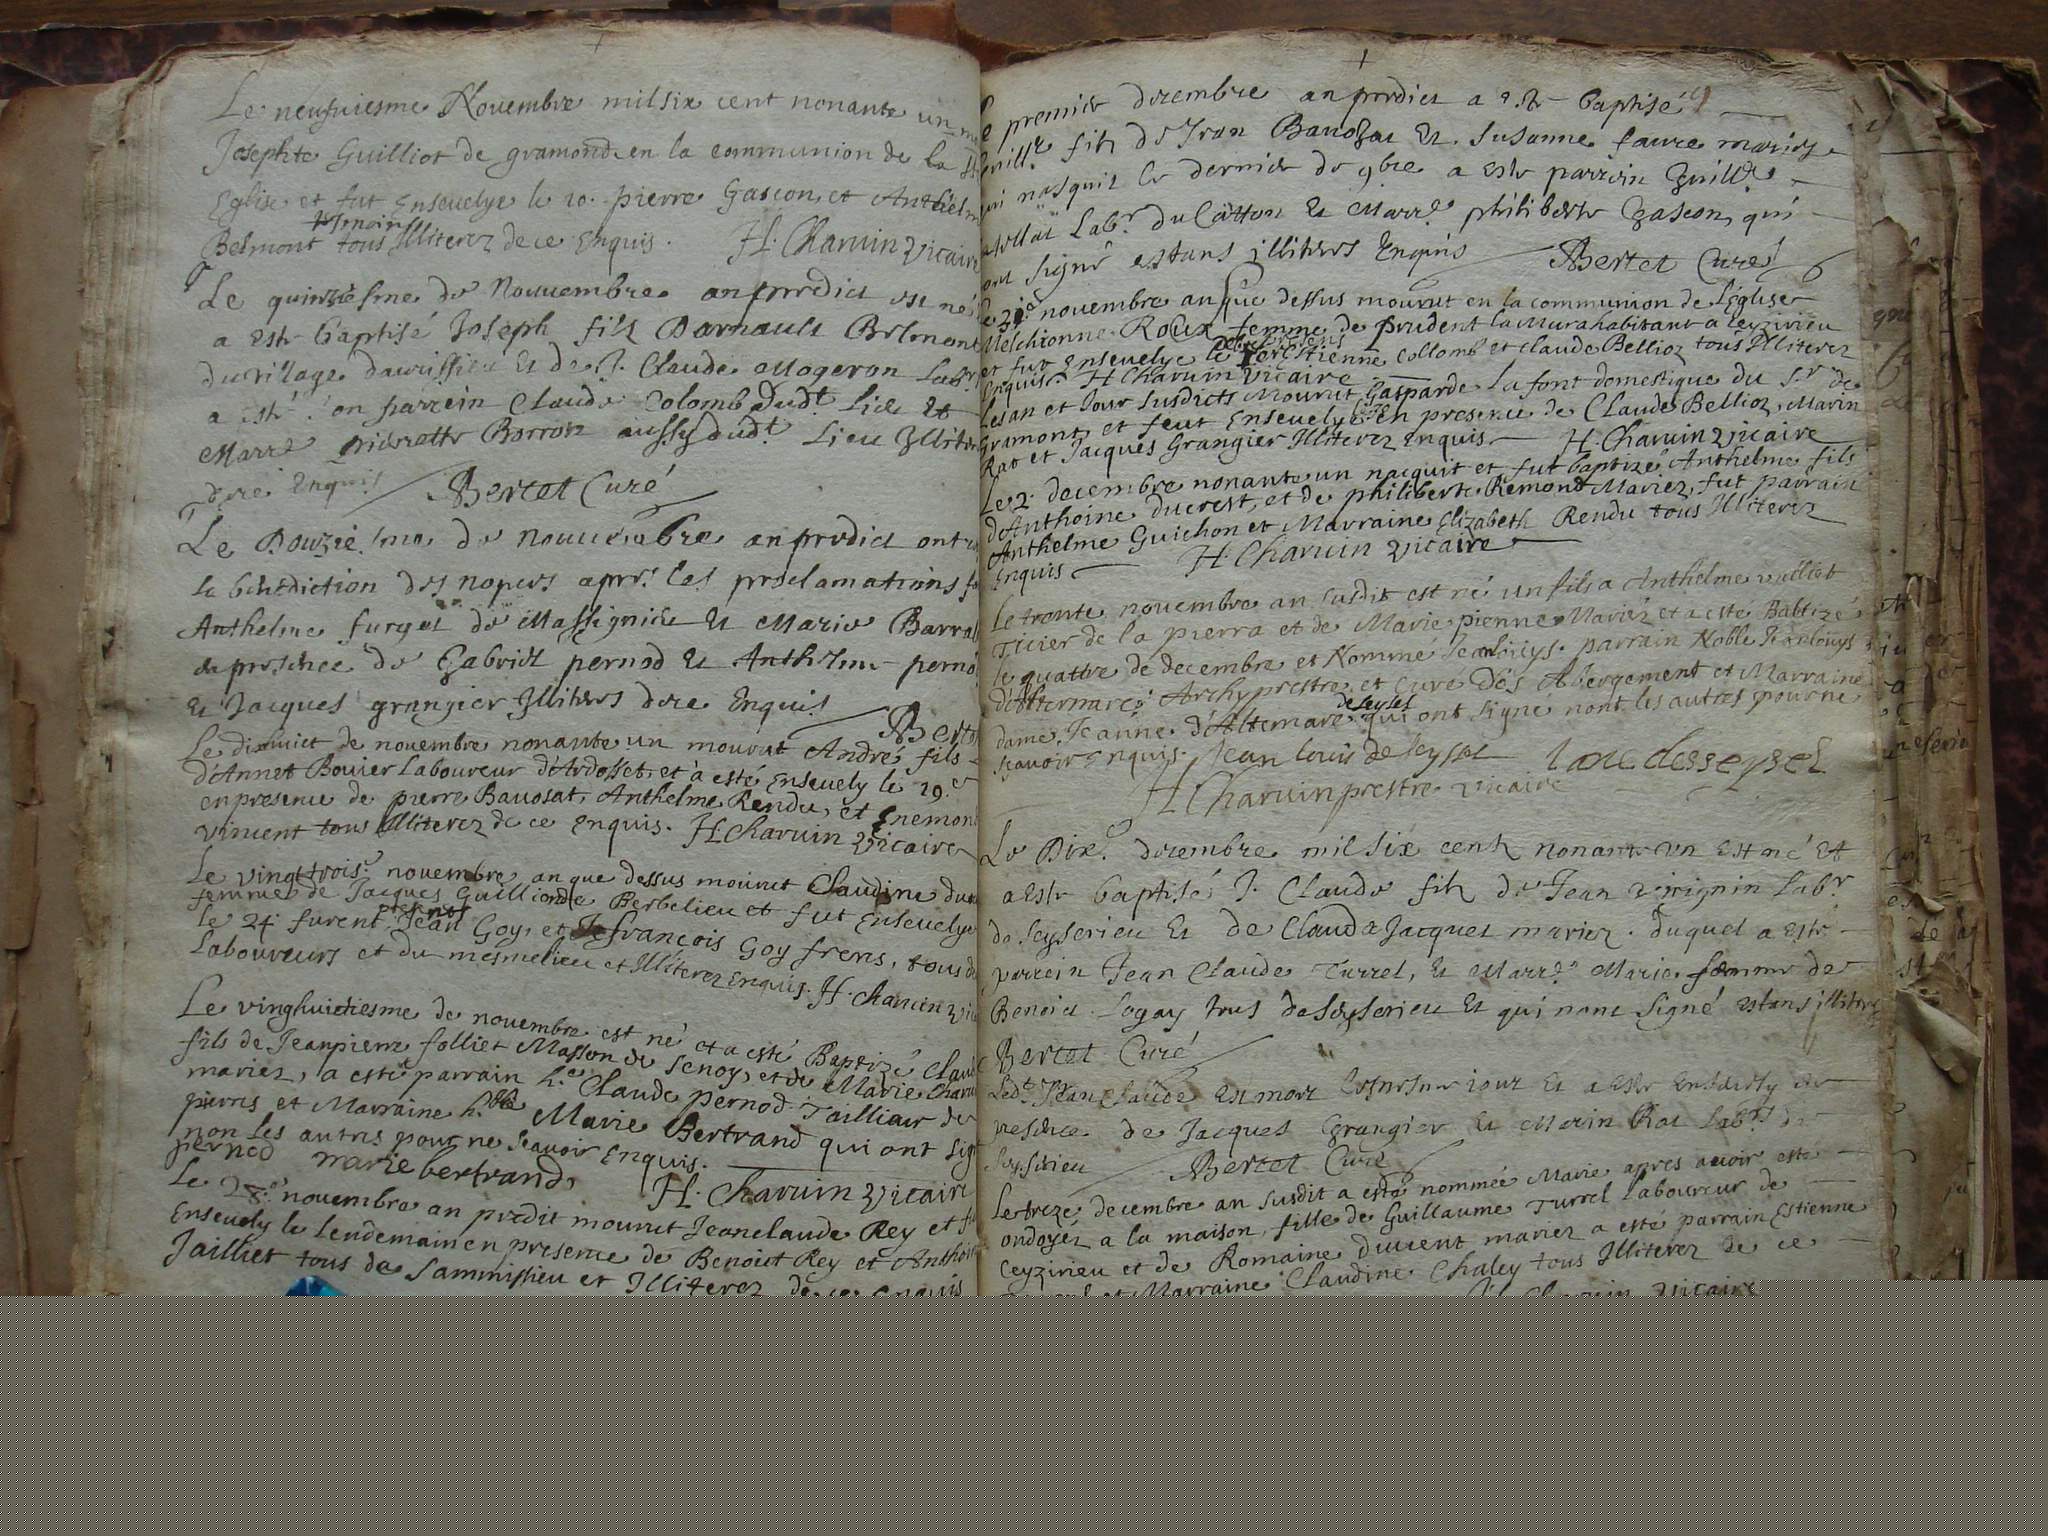 Le neufuiesme Novembre mil six cent nonante un
Josephte Guilliot de gramond en la communion de la
Eglise et fut Enseuelye le 10. pierre Gascon et Anthelm
Belmont tous Illiterez de ce Enquis. H. Charuin Vicaire
Le quinziesme de Nouuembre an prédict est né
a esté baptisé Joseph filz Darnault Belmont
du village et de J. Claude Mogeron Labr
a esté son parrein Claude Colomb dudt. Lieu Et
Marre pierrette Borron aussy dudt. Lieu Illiter
de ce Enquis Bertet Curé
Le Douzie.me de nouuembre an prédict ont
la bénédiction des nopces apres les proclamations
Anthelme furget de Massignieu Et Marie Barral
en presence de Gabriel pernod Et Anthelme pernod
Et Jacques grangier Illiters de ce Enquis
Le dixhuict de novembre nonante un mourut André fils
d'Annet Bouier Laboureur d'Ardosset, et a esté Enseuely le 19.e
en presence de pierre Bauosat, Anthelme Rendu, et Enemond
Vincent tous Illiterez de ce Enquis. H. Charuin Vicaire
Le vingttrois.e novembre an que dessus mourut Claudine
femme de Jacques Guilliond de Berbelieu et fut Enseuelye
le 24. furent presents Jean Goy, et françois Goy freres, tous
Laboureurs et du mesme lieu et Illiterez Enquis. H. Charuin
Le vinghuictiesme de novembre est né et a esté Baptizé Claude
fils de Jeanpierre folliet Masson de Senoy, et de Marie Charuin
mariez, a esté parrain h.e Claude pernod Tailliur de
pierres et Marraine h.ble Marie Bertrand qui ont signé
non les autres pour ne Scauoir Enquis.
pernod marie bertrand, H. Charuin Vicaire
Le 28.e novembre an predit mourut Jeanclaude Rey et fut
Enseuely le lendemain en presence de Benoict Rey et Anthoine
Jailliet tous de Sammissieu et Illiterez de ce Enquis
Le premier decembre an prédict a esté baptisé
Guill.e filz de Jean Bauozat Et Susanne faure mariez
qui nasquit le dernier de 9bre a esté parrein Guill.e
Labr. du Catton Et Marre. philiberte Gascon, qui
ont signé estans illiters Enquis Bertet Curé
le novembre an que dessus mourut en la communion de l'Église
Melchionne Roux femme de prudent la Mura habitant a Ceyzirieu
et fut Enseuelye le Estienne Collomb et Claude Bellioz tous Illiterez
Enquis. H Charuin Vicaire
Les an et Jour Susdicts Mourut Gasparde La font domestique du S.r de
Gramont, et feut Enseuelye En presence de Claude Bellioz, Marin
Rat et Jacques Grangier Illiterez Enquis H. Charuin Vicaire
Le 2. decembre nonante un nacquit et fut baptizé Anthelme fils
d'Anthoine ducrest, et de philiberte Remond Mariez, fut parrain
Anthelme Guichon et Marraine Elizabeth Rendu tous Illiterez
Enquis H. Charuin Vicaire
Le trente novembre an susdit est né un fils a Anthelme vulliet
Ticier de la pierra et de Marie pienne Mariez et a esté Babtizé
le quattre de decembre et Nommé Jeanlouys. parrain Noble Jeanlouys
d'Altemare Archyprestre et Curé des Abergement et Marraine
dame Jeanne d'Altemare de seyssel qui ont signé non les autres pour ne
scavoir Enquis. Jean louis de seyssel
H Charuin prestre vicaire
Le Dix.e decembre mil six cent nonante un Est né Et
a esté baptisé J. Claude filz de Jean virignin Labr.
de Seyserieu Et de Clauda Jacquet mariez. Duquel a esté
parrein Jean Claude Turrel, Et Marre. Marie femme de
Benoict Logay tous de Seyserieu Et qui nont Signé estans illiters
Bertet Curé
Led.t Jean Claude Est mort le mesme iour Et a esté Enseuely en
presence de Jacques Grangier Et Marin Rat Labrs. de
Seyserieu Bertet Curé
Le treze decembre an susdit a esté nommée Marie apres auoir esté
ondoyée a la maison, fille de Guillaume Turrel Laboureur de
Ceyzirieu et de Romaine Duuent mariez a esté parrain Estienne
et Marraine Claudine Chaley tous Illiterez de ce
H. Charuin Vicaire